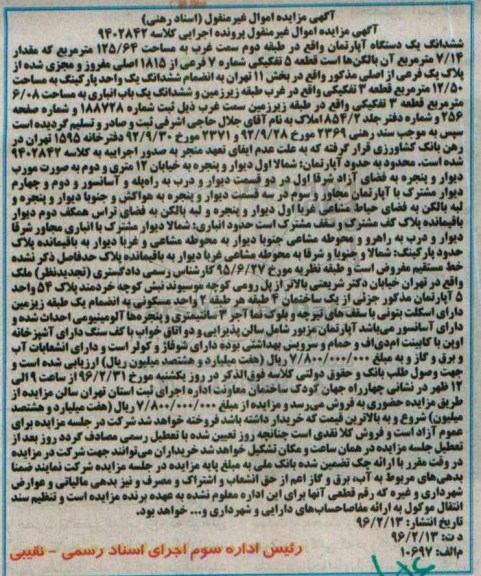 آگهی مزایده اموال غیرمنقول (اسناد رهنی)
آگهی مزایده اموال غیرمنقول پرونده اجرایی کلاسه ۹۴۰۲۸۴۲
ششدانگ یک دستگاه آپارتمان واقع در طبقه دوم سمت غرب به مساحت ۱۲۵/۶۴ مترمربع که مقدار
۷/۱۴ مترمربع آن بالکن‌ها است قطعه ۵ تفکیکی شماره ۷ فرعی از ۱۸۱۵ اصلی مفروز و مجزی شده از
پلاک یک فرعی از اصلی مذکور واقع در بخش ۱۱ تهران به انضمام ششدانگ یک واحد پارکینگ به مساحت
۱۲/۵۰ مترمربع قطعه ۳ تفکیکی واقع در غرب طبقه زیرزمین و ششدانگ یک باب انباری به مساحت ۶/۰۸
مترمربع قطعه ۳ تفکیکی واقع در طبقه زیرزمین سمت غرب ذیل ثبت شماره ۱۸۸۷۲۸ و شماره صفحه
۲۵۶ و شماره دفتر جلد ۸۵۴/۲ املاک به نام آقای جلال حاجی اشرفی ثبت و صادر و تسلیم گردیده است
سپس به موجب سند رهنی ۲۳۶۹ مورخ ۹۲/۹/۲۸ و ۲۳۷۱ مورخ ۹۲/۹/۳۰ دفترخانه ۱۵۹۵ تهران در
رهن بانک کشاورزی قرار گرفته که به علت عدم ایفای تعهد منجر به صدور اجراییه به کلاسه ۹۴۰۲۸۴۲
شده است. محدود به حدود آپارتمان: شمالا اول دیوار و پنجره به خیابان ۱۲ متری و دوم به صورت مورب
دیوار و پنجره به فضای آزاد شرقا اول در دو قسمت دیوار و درب به راه‌پله و آسانسور و دوم و چهارم
دیوار مشترک با آپارتمان مجاور و سوم در سه قسمت دیوار و پنجره به هواکش و جنوبا دیوار و پنجره و
لبه بالکن به فضای حیاط مشاعی غربا اول دیوار و پنجره و لبه بالکن به فضای تراس همکف دوم دیوار
باقیمانده پلاک کف مشترک و سقف مشترک است حدود انباری: شمالا دیوار مشترک با انباری مجاور شرقا
دیوار و درب به راهرو و محوطه مشاعی جنوبا دیوار به محوطه مشاعی و غربا دیوار به باقیمانده پلاک
حدود پارکینگ: شمالا و جنوبا و شرقا به محوطه مشاعی غربا دیوار به باقیمانده پلاک حدفاصل ذکر نشده
خط مستقیم مفروض است و طبق نظریه مورخ ۹۵/۶/۲۷ کارشناس رسمی دادگستری (تجدیدنظر) ملک
واقع در تهران خیابان دکتر شریعتی بالاتر از پل رومی کوچه موسیوند نبش کوچه خردمند پلاک ۵۴ واحد
۵ آپارتمان مذکور جزئی از یک ساختمان ۴ طبقه هر طبقه ۲ واحد مسکونی به انضمام یک طبقه زیرزمین
دارای اسکلت بتونی با سقف‌های تیرچه و بلوک نما آجر ۳ سانتیمتری و پنجره‌ها آلومینیومی احداث شده و
دارای آسانسور می‌باشد آپارتمان مزبور شامل سالن پذیرایی و دو اتاق خواب با کف سنگ دارای آشپزخانه
اوپن با کابینت ام‌دی‌اف و حمام و سرویس بهداشتی بوده دارای شوفاژ و کولر است و دارای انشعابات آب
و برق و گاز و به مبلغ ۷/۸۰۰/۰۰۰/۰۰۰ ریال (هفت میلیارد و هشتصد میلیون ریال) ارزیابی شده است و
جهت وصول طلب بانک و حقوق دولتی کلاسه فوق‌الذکر در روز یکشنبه مورخ ۹۶/۲/۳۱ از ساعت ۹ الی
۱۲ ظهر در نشانی چهارراه جهان کودک ساختمان معاونت اداره اجرای ثبت استان تهران سالن مزایده از
طریق مزایده حضوری به فروش می‌رسد و مزایده از مبلغ ۷/۸۰۰/۰۰۰/۰۰۰ ریال (هفت میلیارد و هشتصد
میلیون) شروع و به بالاترین قیمت که خریدار داشته باشد فروخته خواهد شد شرکت در جلسه مزایده برای
عموم آزاد است و فروش کلا نقدی است چنانچه روز تعیین شده با تعطیل رسمی مصادف گردد روز بعد از
تعطیل جلسه مزایده در همان ساعت و مکان تشکیل خواهد شد خریداران می‌توانند جهت شرکت در مزایده
در وقت مقرر با ارائه چک تضمین شده بانک ملی به مبلغ پایه مزایده در جلسه مزایده شرکت نمایند ضمنا
بدهی‌های مربوط به آب، برق و گاز اعم از حق انشعاب و اشتراک و مصرف و نیز بدهی مالیاتی و عوارض
شهرداری و غیره که رقم قطعی آنها برای این اداره معلوم نشده به عهده برنده مزایده است و تنظیم سند
انتقال موکول به ارائه مفاصاحساب‌های دارایی و شهرداری و... خواهد بود.
تاریخ انتشار: ۹۶/۲/۱۳
د ت: ۹۶/۲/۱۳
م الف: ۱۰۶۹۷
رئیس اداره سوم اجرای اسناد رسمی - نقیبی